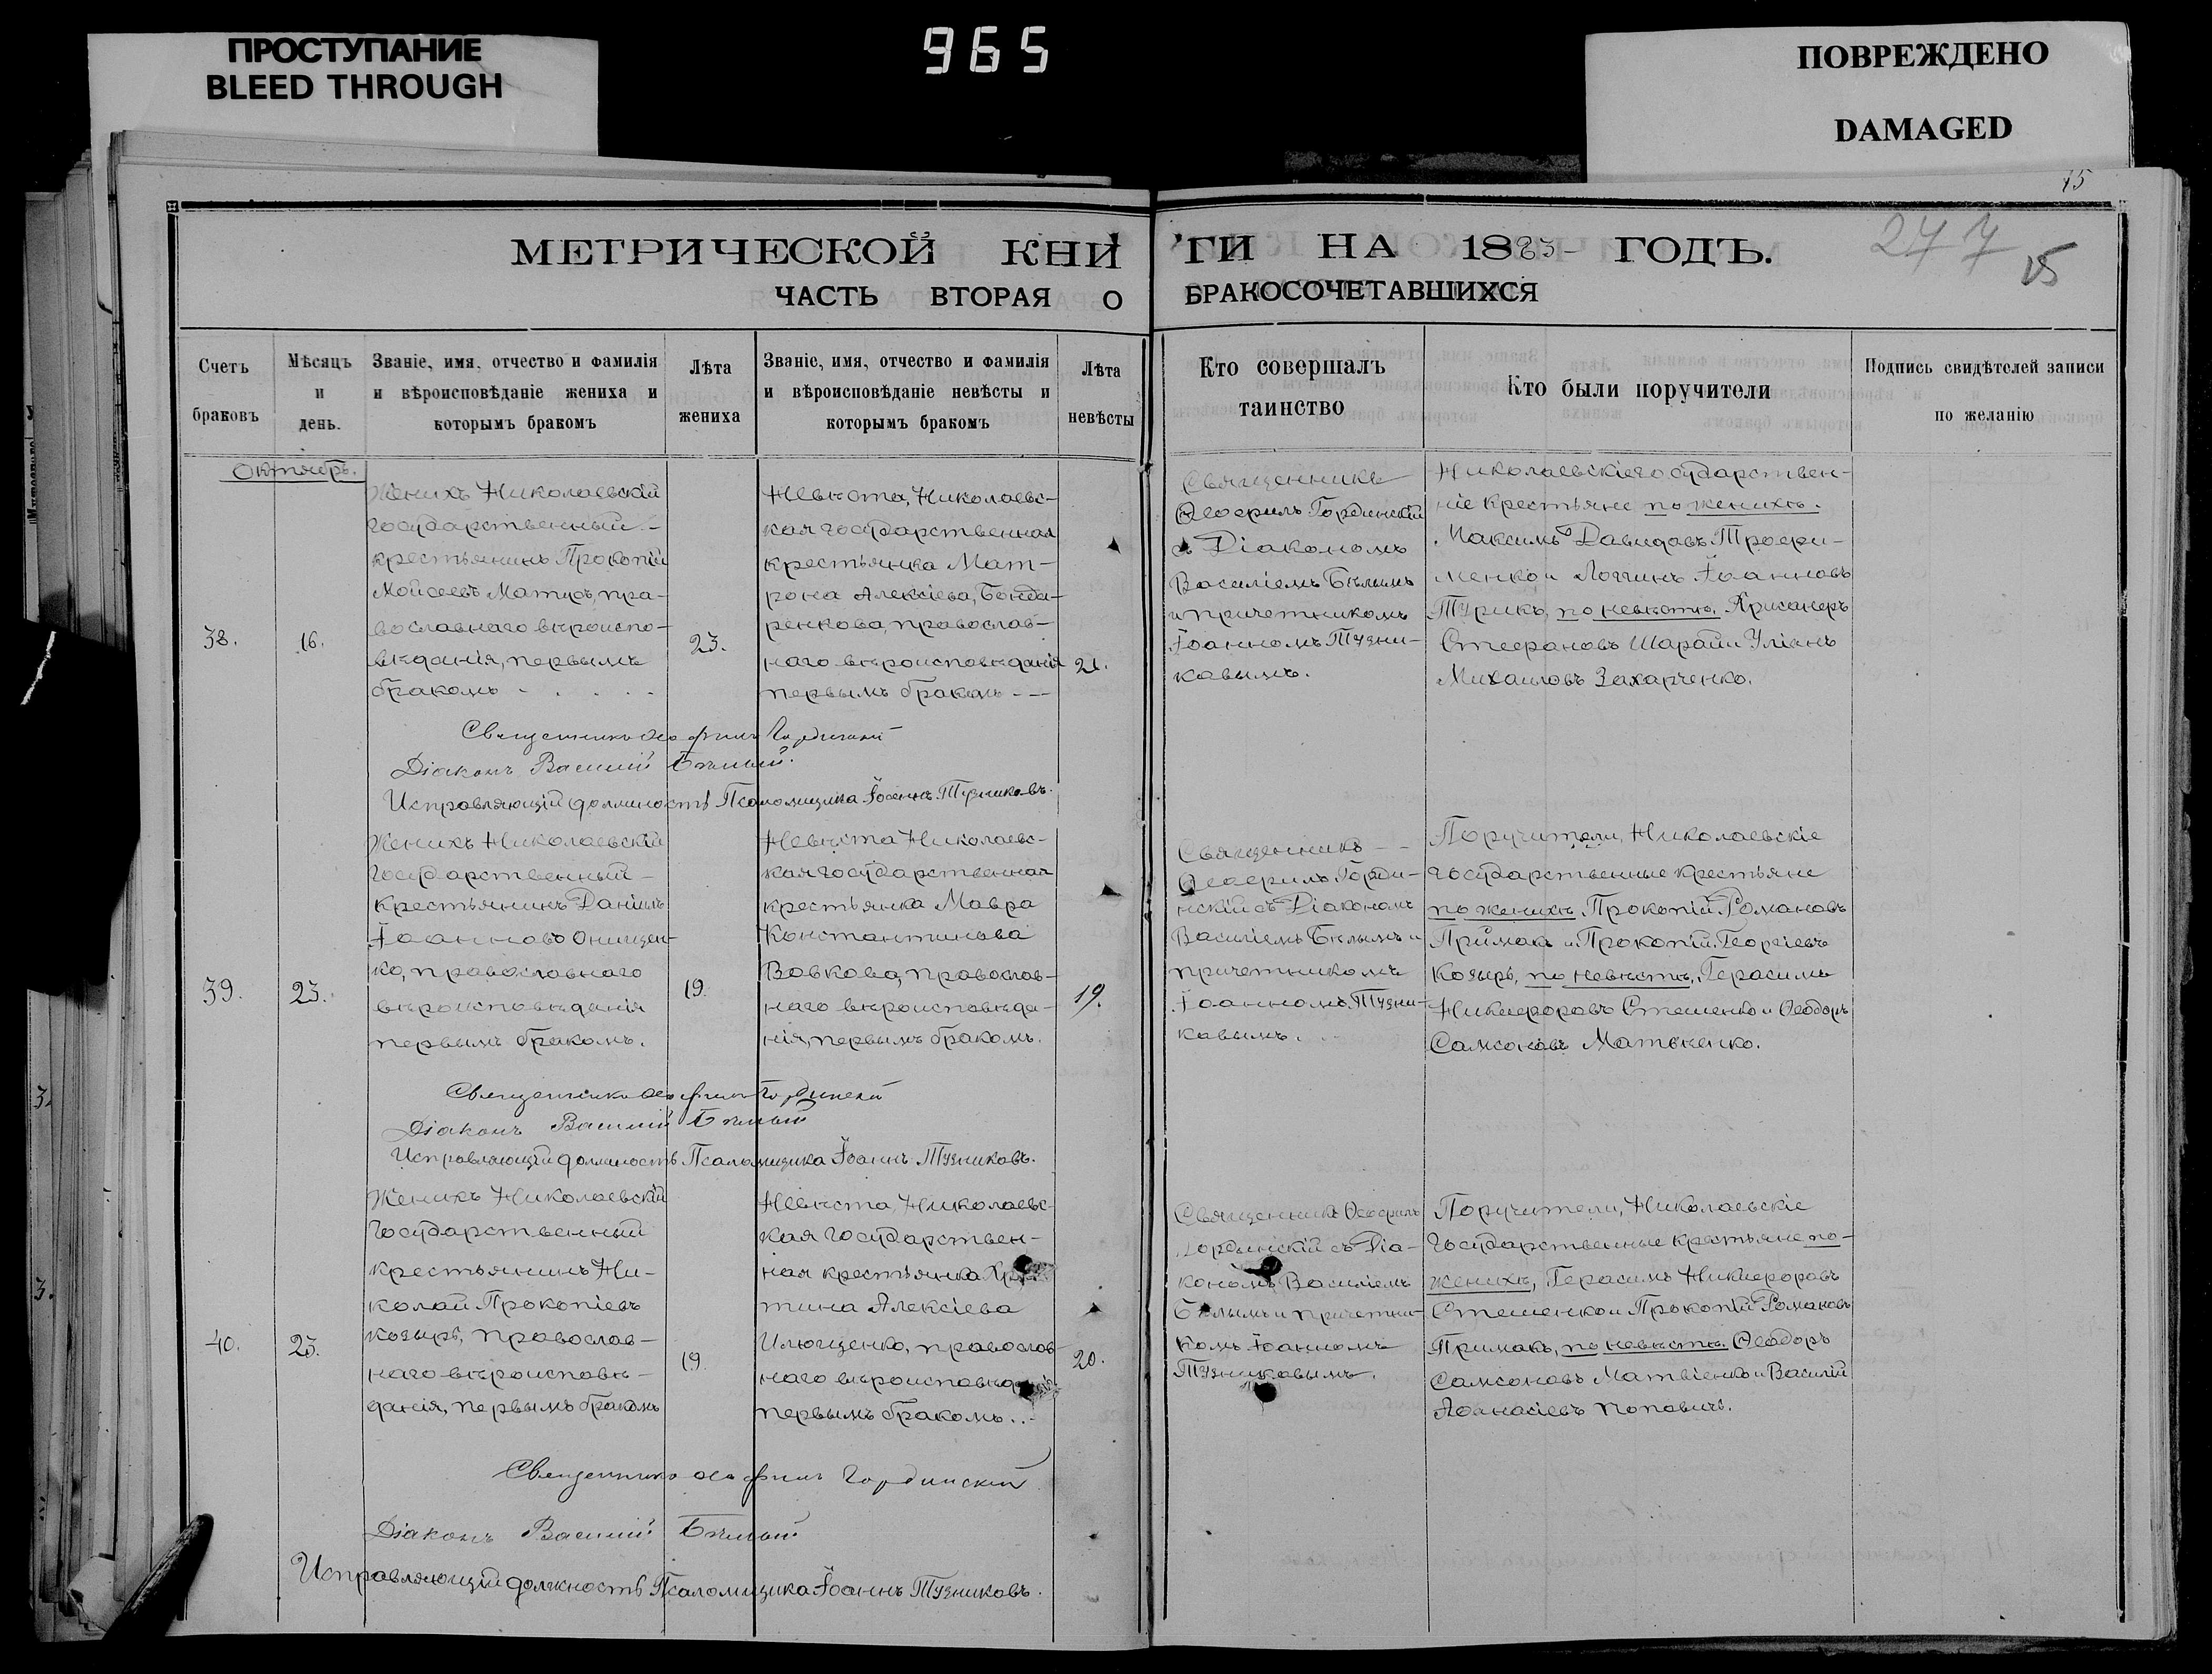 ПРОСТУПАНИЕ
BLEED THROUGH
965
ПОВРЕЖДЕНО
DAMAGED
15
277
МЕТРИЧЕСКОЙ КНИ
ГИ НА 1883 ГОДЪ.
ЧАСТЬ ВТОРАЯ О
БРАКОСОЧЕТАВШИХСЯ
Счетъ
браковъ
Мѣсяцъ
и
день.
Званіе, имя, отчество и фамилія
и вѣроисповѣданіе жениха и
которымъ бракомъ
Лѣта
жениха
Званіе, имя, отчество и фамилія
и вѣроисповѣданіе невѣсты и
которымъ бракомъ
Лѣта
невѣсты
Кто совершалъ
таинство
Кто были поручители
Подпись свидѣтелей записи
по желанію
Октябрь.
38.
16.
Женихъ Николаевскій
государственный
крестьянинъ Прокопій
Мойсеевъ Матусъ, пра-
вославнаго вѣроиспо-
вѣданія, первымъ
бракомъ
23.
Невѣста, Николаевс-
кая государственная
крестьянка Мат-
рона Алексіева, Бонда-
ренкова, православ-
наго вѣроисповѣданія
первымъ бракомъ
21.
Священникъ
Ѳеофилъ Гординскій
съ Діакономъ
Василіемъ Бѣлымъ
и причетникомъ
Іоанномъ Тузни-
ковымъ.
Николаевскіе государствен-
ніе крестьяне по женихѣ.
Максимъ Давидовъ Трофи-
менко и Логгинъ Іоанновъ
Турикъ, по невѣстѣ,
Стефановъ Шарай и Уліанъ
Михаиловъ Захарченко.
Священникъ Ѳеофилъ Гординскій
Діаконъ Василій Бѣлый.
Исправляющій должность Псаломщика Іоаннъ Тузниковъ.
39.
23.
Женихъ Николаевскій
Государственный
крестьянинъ Даніилъ
Іоанновъ Онищен-
ко, православнаго
вѣроисповѣданія
первымъ бракомъ.
19.
Невѣста Николаевс-
кая государственная
крестьянка Мавра
Константинова
Вовкова, православ-
наго вѣроисповѣда-
нія, первымъ бракомъ.
19.
Священникъ
Ѳеофилъ Горди-
нскій съ Діакономъ
Василіемъ Бѣлымъ и
причетникомъ
Іоанномъ Тузни-
ковымъ.
Поручители, Николаевскіе
государственные крестьяне
по женихѣ, Прокопій Романовъ
Примакъ и Прокопій Георгіевъ
Козырь, по невѣстѣ, Герасимъ
Никифоровъ Стешенко и Ѳеодоръ
Самсоновъ Матвѣенко.
Священникъ Ѳеофилъ Гординскій
Діаконъ Василій Бѣлый
Исправляющій должность Псаломщика Іоаннъ Тузниковъ.
40.
23.
Женихъ Николаевскій
Государственный
крестьянинъ Ни-
колай Прокопіевъ
Козырь, православ-
наго вѣроисповѣ-
данія, первымъ бракомъ
19.
Невѣста, Николаевс-
кая государствен-
ная крестьянка
тина Алексіева
Илющенко, православ-
наго вѣроисповѣданія
первымъ бракомъ.
20.
Священникъ Ѳеофилъ
Гординскій съ Діа-
кономъ Василіемъ
Бѣлымъ и причетни-
комъ Іоанномъ
Тузниковымъ.
Поручители, Николаевскіе
Государственные крестьяне по-
женихѣ, Герасимъ Никифоровъ
Стешенко и Прокопій Романовъ
Примакъ, по невѣстѣ. Ѳеодоръ
Самсоновъ Матвіенко и Василій
Аѳанасіевъ Поповичъ.
Священникъ Ѳеофилъ Гординскій
Діаконъ Василій Бѣлый
Исправляющій должность Псаломщика Іоаннъ Тузниковъ.